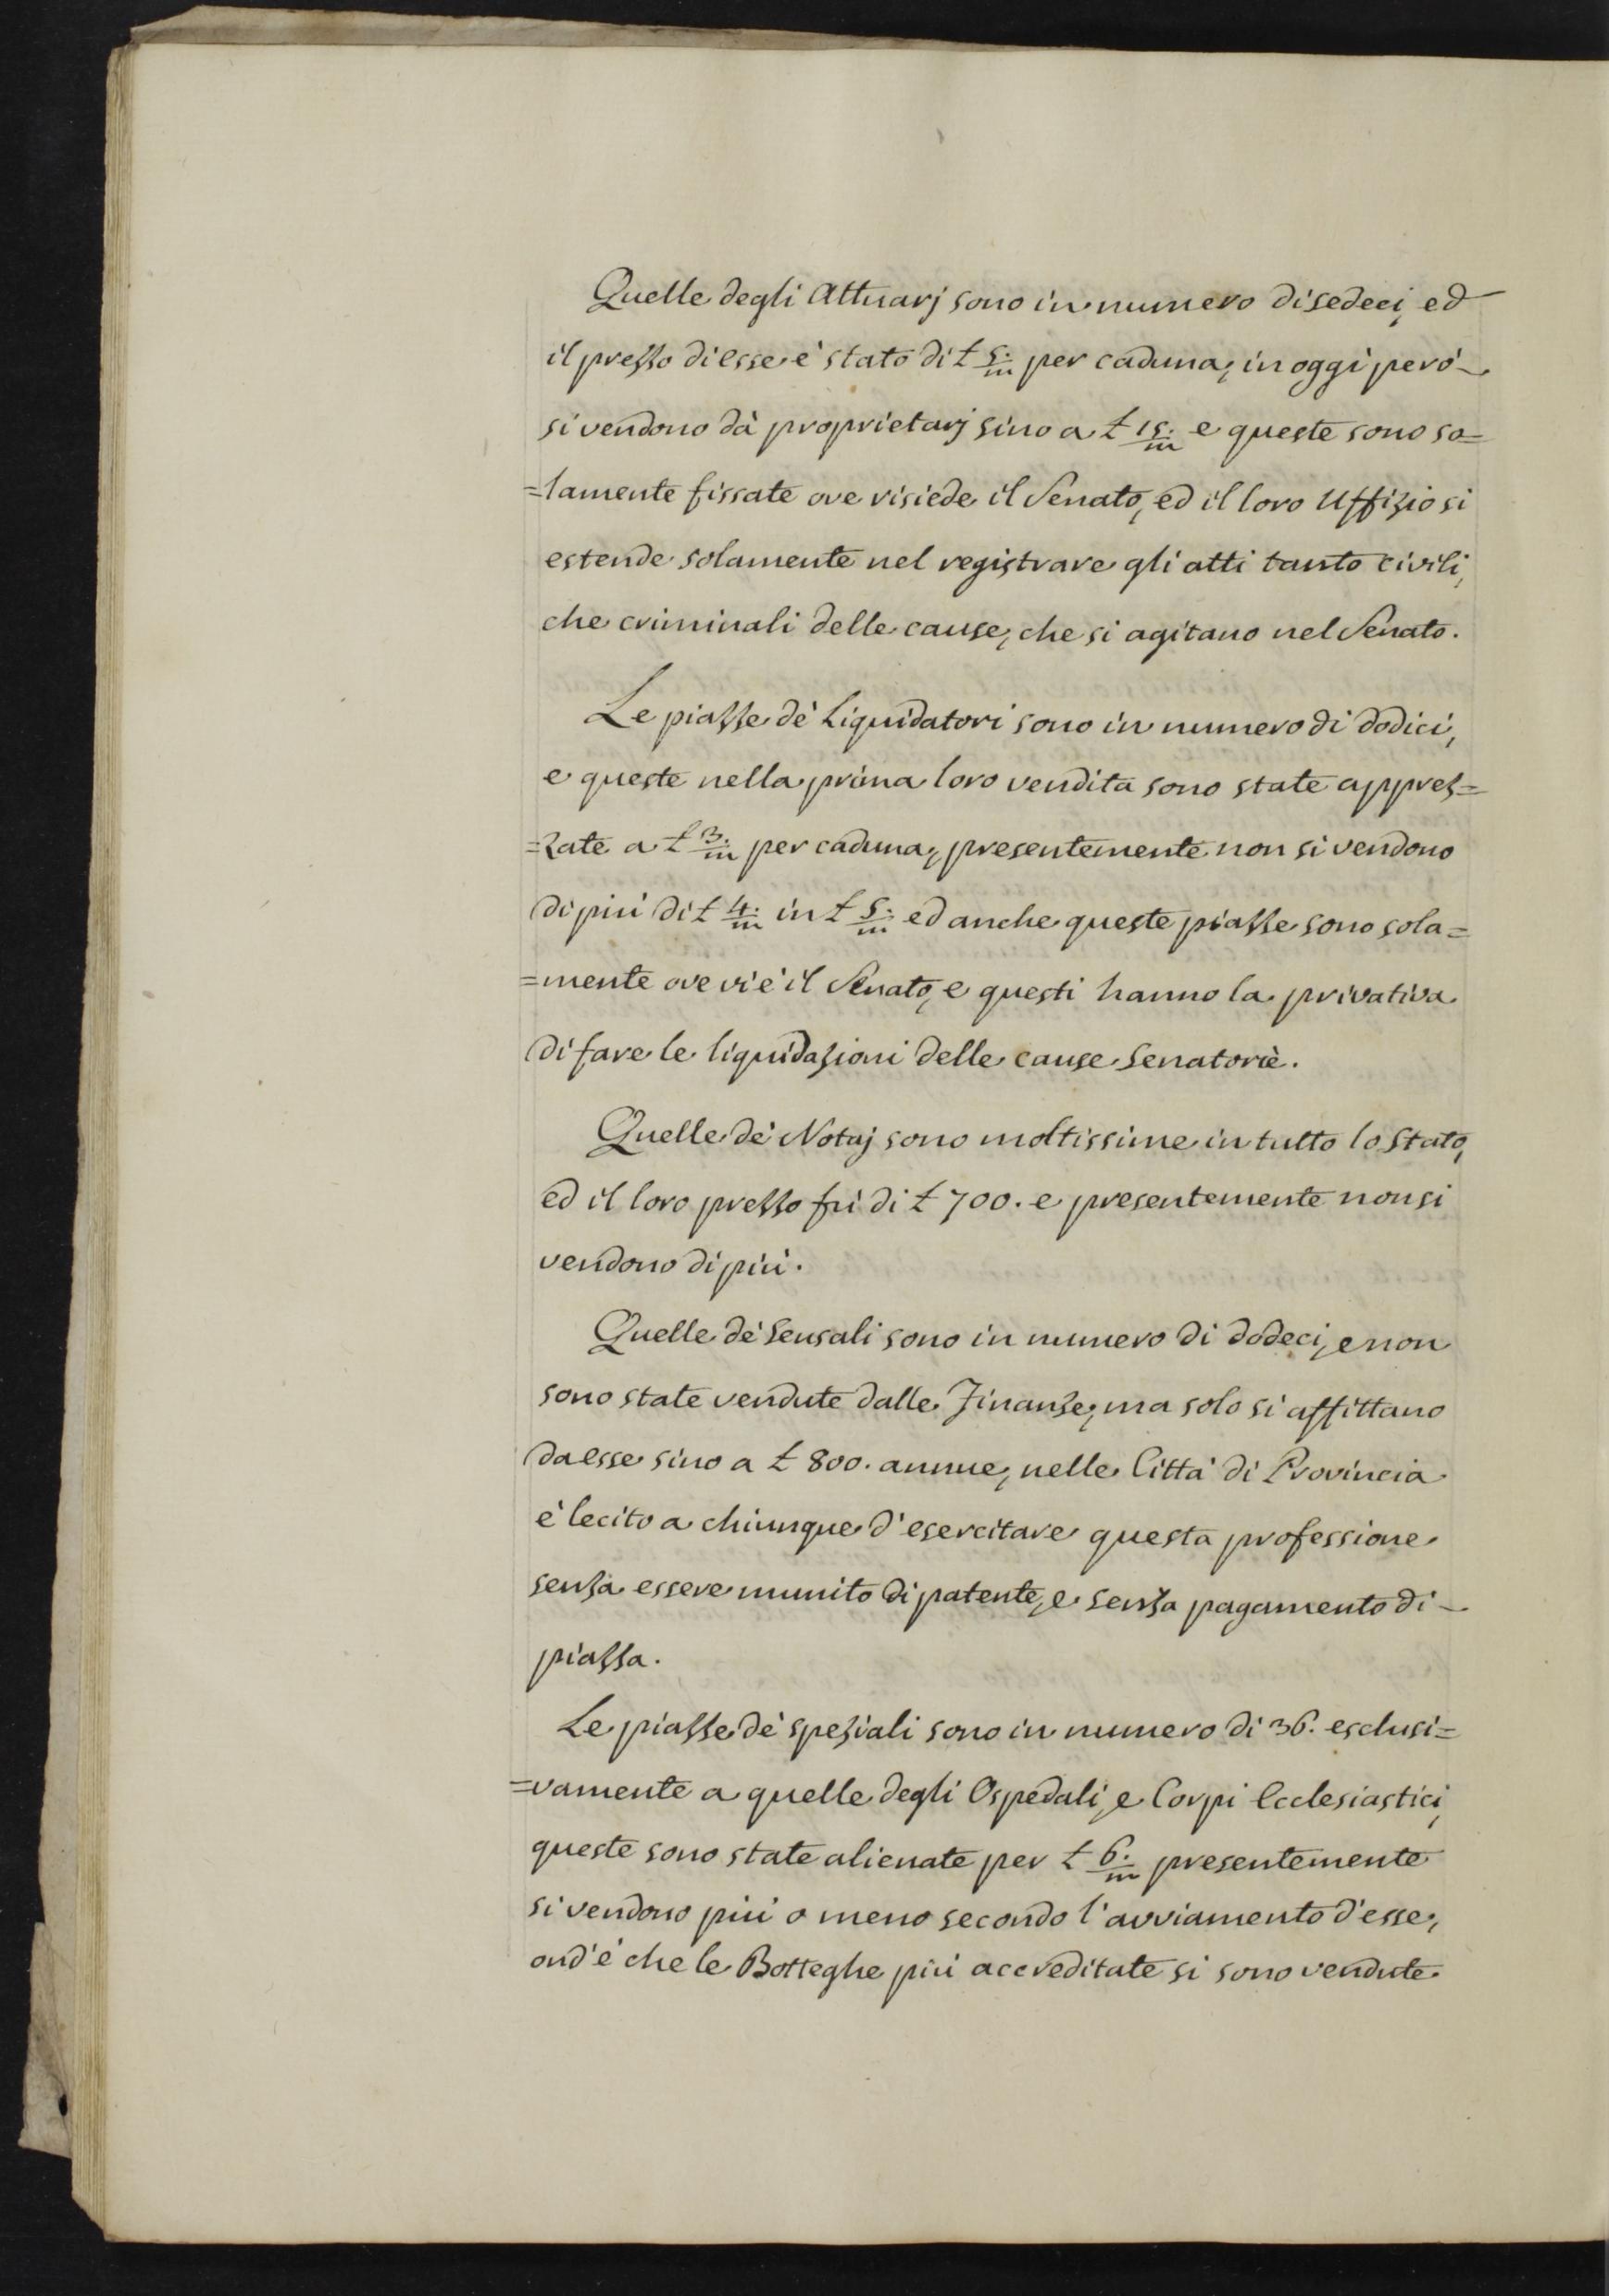 Quelle degli Attuarj sono in numero di sedeci, ed
il prezzo di esse è stato di £ 5/m per caduna; in oggi però
si vendono dà proprietarj sino a £ 15/m e queste sono so=
=lamente fissate ove risiede il Senato, ed il loro Uffizio si
estende solamente nel registrare gli atti tanto civili,
che criminali delle cause, che si agitano nel Senato.
Le piazze dè Liquidatori sono in numero di dodici,
e queste nella prima loro vendita sono state apprez=
=zate a £ 3/m per caduna, presentemente non si vendono
di più di £ 4/m in £ 5/m ed anche queste piazze sono sola=
=mente ove vi è il Senato, e questi hanno la privativa
di fare le liquidazioni delle cause Senatorie.
Quelle dè Notaj sono moltissime in tutto lo Stato,
ed il loro prezzo fù di £ 700. e presentemente non si
vendono di più.
Quelle dè Sensali sono in numero di dodeci, e non
sono state vendute dalle Finanze; ma solo si affittano
da esse sino a £ 800. annue, nelle Città di Provincia
è lecito a chiunque d'esercitare questa professione
senza essere munito di patente, e senza pagamento di
piazza.
Le piazze dè speziali sono in numero di 36. esclusi=
=vamente a quelle degli Ospedali, e Corpi Ecclesiastici,
queste sono state alienate per £ 6/m presentemente
si vendono più o meno secondo l'avviamento d'esse,
ond'è che le Botteghe più accreditate si sono vendute